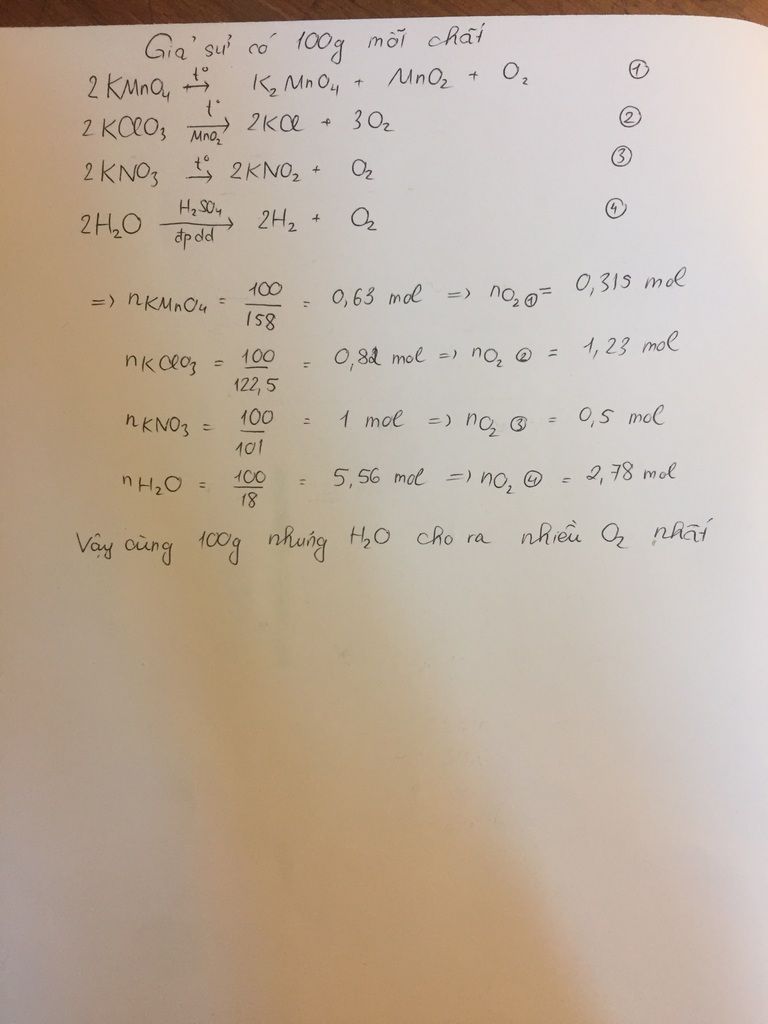 Giả sử có 100g mỗi chất
2KMnO₄ →(t°) K₂MnO₄ + MnO₂ + O₂ ①
2KClO₃ →(t°, MnO₂) 2KCl + 3O₂ ②
2KNO₃ →(t°) 2KNO₂ + O₂ ③
2H₂O →(H₂SO₄, đpdd) 2H₂ + O₂ ④
=> nKMnO₄ = 100/158 = 0,63 mol => nO₂ ① = 0,315 mol
nKClO₃ = 100/122,5 = 0,82 mol => nO₂ ② = 1,23 mol
nKNO₃ = 100/101 = 1 mol => nO₂ ③ = 0,5 mol
nH₂O = 100/18 = 5,56 mol => nO₂ ④ = 2,78 mol
Vậy cùng 100g nhưng H₂O cho ra nhiều O₂ nhất